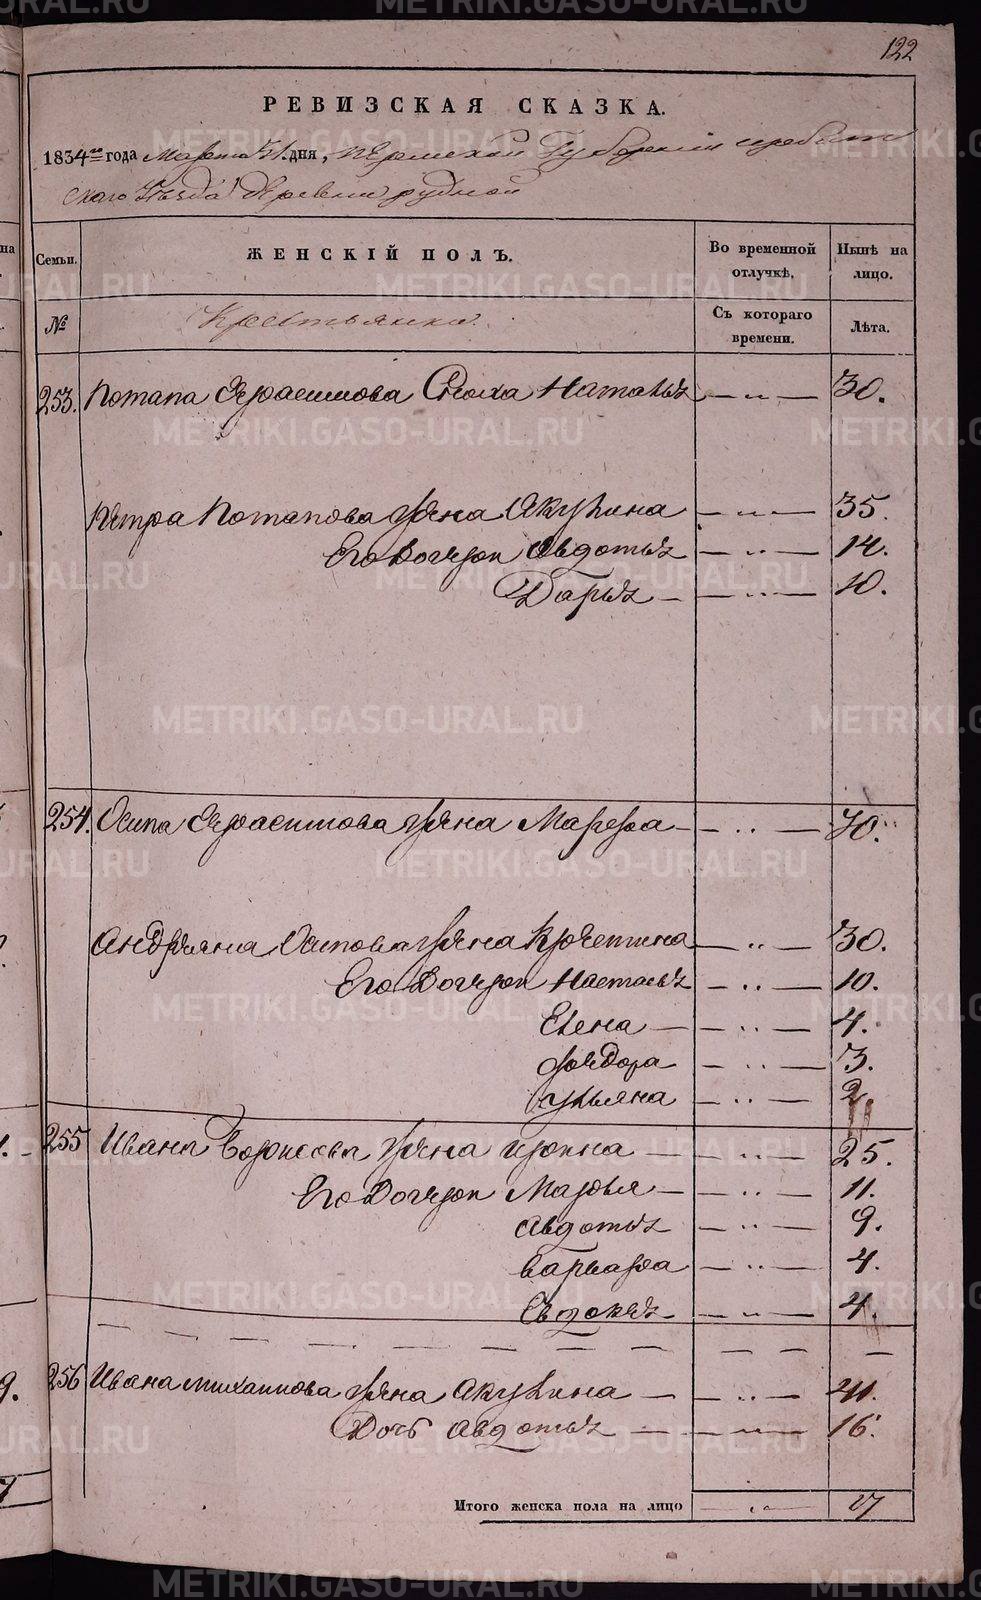 122
РЕВИЗСКАЯ СКАЗКА.
1834го года Марта 31. дня, Пермской Губернии Ирбит
скаго Уѣзда Деревни рудной
Семьи. ЖЕНСКІЙ ПОЛЪ. Во временной отлучкѣ. Нынѣ на лицо.
№ Крестьянки. Съ котораго времени. Лѣта.
253. Потапа Герасимова Сноха Наталья — „ — 30.
Петра Потапова жена Акулина — „ — 35.
Его Дочери Авдотья — „ — 14.
Дарья — — „ — 10.
254. Осипа Герасимова жена Марфа — — „ — 70.
Андрияна Осипова жена — „ — 30.
Его Дочери Настасья — „ — 10.
Елена — — „ — 4.
Федора — „ — 3.
Ульяна — „ — 2.
255 Ивана Борисова жена Ирина — — „ — 25.
Его Дочери Марья — — „ — 11.
Авдотья — „ — 9.
Варвара — „ — 4.
Евдокея — — „ — 4.
256 Ивана Михаилова жена Акулина — — „ — 41.
Дочь Авдотья — — „ — 16.
Итого женска пола на лицо — „ — 17
METRIKI.GASO-URAL.RU